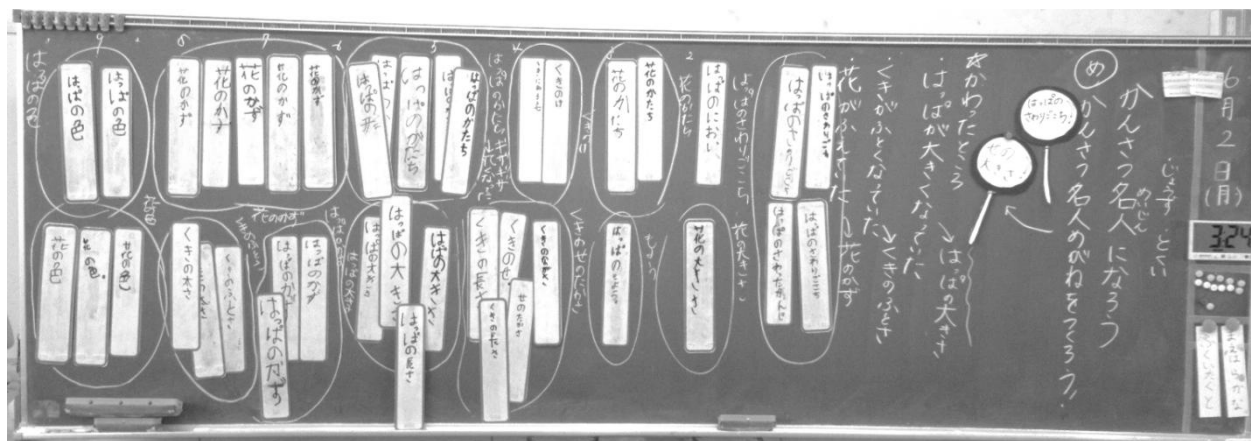 6月2日(月)
3:24
じょうず とくい
めいじん
かんさつ名人になろう
め かんさつ名人めがねをつくろう!
はっぱの
さわりごこち
せの
大きさ
☆かわったところ
・はっぱが大きくなっていた
→はっぱの大きさ
・くきがふとくなっていた
→くきのふとさ
・花がふえていた→花のかず
はっぱのさわりごこち
はっぱのさわりごこち
はっぱのさわりごこち
はっぱのさわったかんじ
はっぱのさわりごこち
2
はっぱのにおい
花のかたち
花の大きさ
花の大きさ
花のかたち
花のかたち
もよう
はっぱのもよう
4
くきのけ
くきのせのたかさ
くきのながさ
せのたかさ
くきの長さ
くきの長さ
はっぱのかたち
ギザギザ
5
はっぱのかたち
はっぱのかたち
はっぱの形
はっぱの大きさ
はっぱの大きさ
はっぱの大きさ
はっぱの長さ
はっぱの大きさ
6
花のかず
花のかず
7
花のかず
花のかず
8
花のかず
花のかず
はっぱのかず
はっぱのかず
はっぱのかず
はっぱのかず
くきのふとさ
くきの太さ
9
はっぱの色
はっぱの色
はっぱの色
花の色
花の色
花の色
花の色